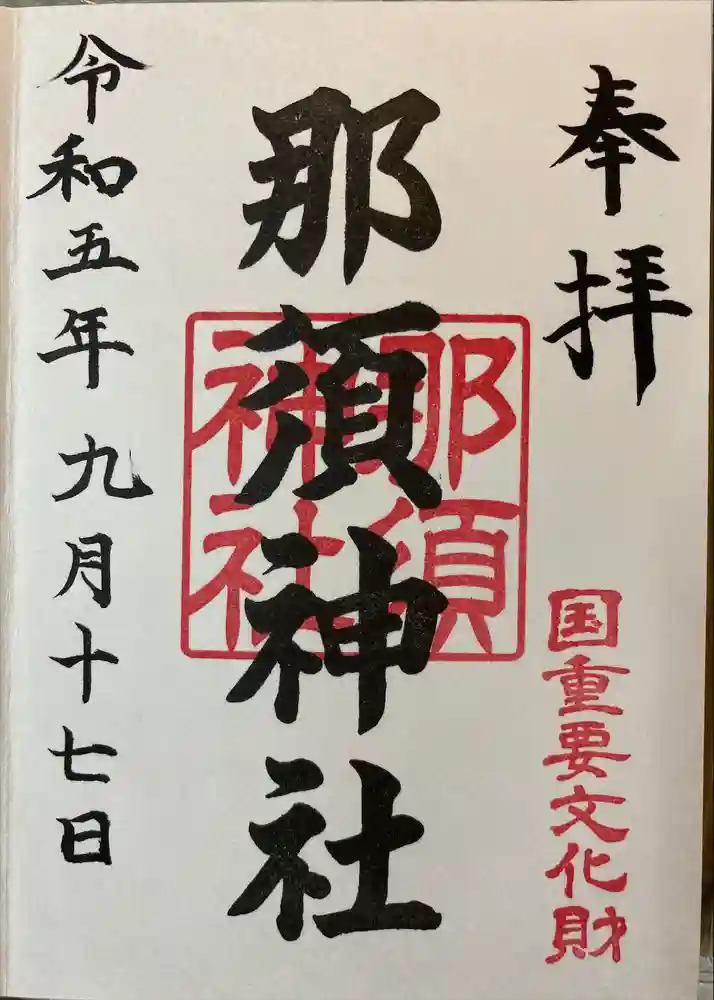 奉拝
国重要文化財
那須神社
那須神社
令和五年九月十七日